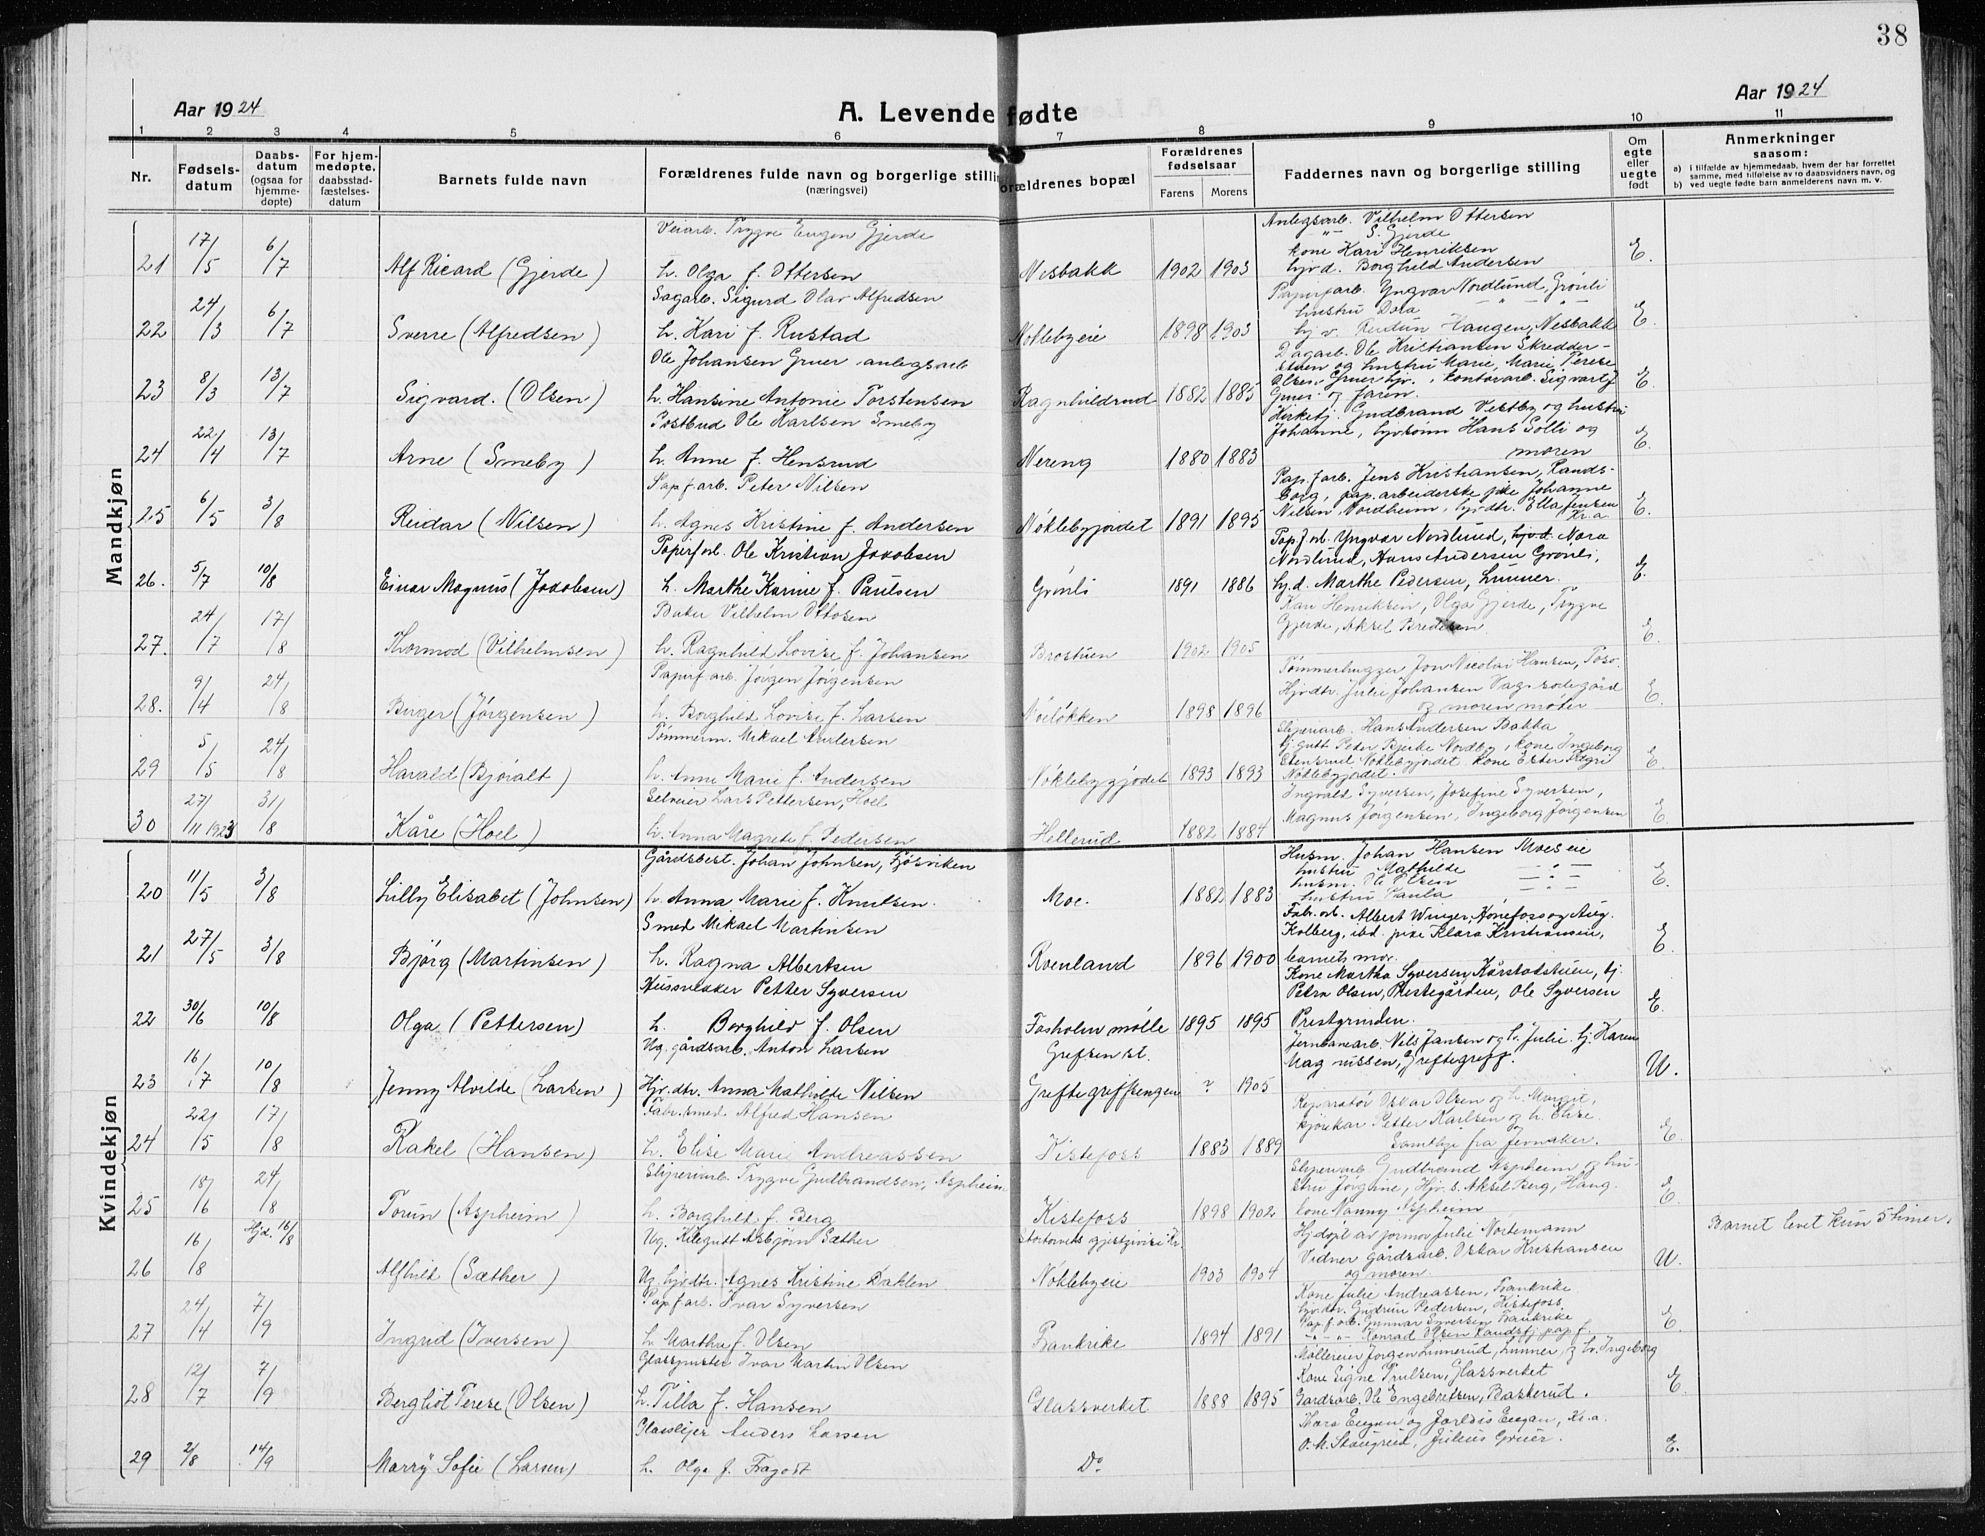 38
Aar 1924
A. Levende fødte
Aar 1924
1 2 3 4 5 6 7 8 9 10 11
Nr.
Fødsels-datum
Daabs-datum (ogsaa for hjemme-døpte)
For hjem-medøpte, daabsstad-fæstelses-datum
Barnets fulde navn
Forældrenes fulde navn og borgerlige stilling (næringsvei)
Forældrenes bopæl
Forældrenes fødselsaar
Farens Morens
Faddernes navn og borgerlige stilling
Om egte eller uegte født
Anmerkninger saasom:
a) i tilfælde av hjemmedaab, hvem der har forrettet samme, med tilføielse av to daabsvidners navn, og
b) ved uegte fødte barn anmelderens navn m. v.
Mandkjøn
Veiarb. Trygve Eugen Gjerde
Anlegsarb. Vilhelm Ottersen
" S. Gjerde
kone Kari Henriksen
21 17/5 6/7 Alf Ricard (Gjerde) h. Olga f. Ottersen Nesbakk 1902 1903 hjv.d. Borghild Andersen E.
Sagarb. Sigurd Olav Alfredsen
Papirfarb. Yngvar Nordlund, Grønli
hustru Dora " " "
22 24/3 6/7 Sverre (Alfredsen) h. Kari f. Rustad Nøklebyeie 1898 1903 Haugen, Nesbakk E.
Ole Johansen Gruer anlegsarb
Dagarb. Ole Kristiansen Skredder-
stuen og hustru Marie, Marie Terese
23 8/3 13/7 Sigvard. (Olsen) h. Hansine Antonie Torstensen Ragnhildrud 1882 1885 Olsen Gruer hjv., kontorarb. Sigvart J E.
Gruer og faren.
Postbud Ole Karlsen Smeby
Kirketj. Gudbrand Vestby og hustru
Johanne, hjvsønn Hans Solli og
24 22/4 13/7 Arne (Smeby) h. Anne f. Hensrud Nereng 1880 1883 moren E.
Papfarb. Peter Nilsen
Papfarb. Jens Kristiansen, Rands-
borg, pap.arbeiderske pike Johanne
25 6/5 3/8 Reidar (Nilsen) h. Agnes Kristine f. Andersen Nøklebyjordet 1891 1895 Nilsen Nordheim, hjvdtr. Ella Jensen Kr.a. E.
Papirfarb. Ole Kristian Jakobsen
Papfarb. Yngvar Nordlund, hjv.d. Nora
Nordlund, Hans Andersen Grønli,
26. 5/7 10/8 Einar Magnus (Jakobsen) h. Marthe Karine f. Paulsen Grønli 1891 1886 hj.d. Marthe Pedersen, Lunner. E.
Baker Vilhelm Ottosen
Kari Henriksen, Olga Gjerde, Trygve
Gjerde, Aksel Bredesen
27. 24/7 17/8 Thormod (Vilhelmsen) h. Ragnhild Lovise f. Johansen Brostuen 1902 1905 E.
Papirfarb. Jørgen Jørgensen
Tømmerhugger Jon Nicolai Hansen, Toso.
Hjvdtr. Julie Johansen
28. 9/4 24/8 Birger (Jørgensen) h. Borghild Lovise f. Larsen Nøiløkken 1898 1896 og moren møter E.
Tømmerm. Mikael Andersen
Sliperiarb. Hans Andersen Bakka
gutt Peter Bjerke Nordby, kone Ingeborg
29 5/5 24/8 Harald (Bjøralt) h. Anne Marie f. Andersen Nøklebygjordet 1893 1893 Stensrud Nøklebyjordet kone Ester E.
Nøklebyjordet.
Selveier Lars Pettersen, Hoel
Ingvald Syversen, Josefine Syversen,
30 27/11 1923 31/8 Kåre (Hoel) h. Anna Magrete f. Pedersen Hellerud 1882 1884 Magnus Jørgensen, Ingeborg Jørgensen E.
Kvindekjøn
Gårdsbest. Johan Johnsen, Gjøsviken
Husm. Johan Hansen Moeseie
hustru Mathilde " "
husm. Ole Olsen " "
20 11/5 3/8 Lilly Elisabet (Johnsen) h. Anna Marie f. Knutsen. Moe. 1882 1883 hustru Paula E.
Smed Mikael Martinsen
Fabr.arb. Albert Winger, Hønefoss og Aug.
Kolberg, ibd. pike Klara Kristiansen,
21 27/5 3/8 Bjørg (Martinsen) h. Ragna Albertsen Roenland 1896 1900 barnets mor. E.
Petter Syversen
Kone Martha Syversen, Kårstadstuen, hj.
Petra Olsen, Prestegården, Ole Syversen
22 30/6 10/8 Olga (Pettersen) h. Borghild f. Olsen Fosholm mølle 1895 1895 Prestgrinden. E.
Ug. gårdsarb. Anton Larsen Grefsen st.
Jernbanearb. Nils Jansen og h. Julie hj. Karen
23 16/7 10/8 Jenny Alvilde (Larsen) Hjv.dtr. Anna Mathilde Nilsen Greftegreffsengen ? 1905 Magnussen, Greftegreff. U.
Fabr. smed Alfred Hansen
Reparatør Oskar Olsen og h. Margit,
Petter Karlsen og h. Elise
24 22/5 17/8 Rakel (Hansen) h. Elise Marie Andreassen Kistefoss 1883 1889 Samtlige fra Jevnaker. E.
Sliperiarb. Trygve Gudbrandsen, Aspheim
Sliperiarb Gudbrand Aspheim og hu-
stru Jørgine, Hjv.s. Aksel Berg, Haug.
25 18/6 24/8 Torun (Aspheim) h. Borghild f. Berg Kistefoss 1898 1902 kone Nanny Aspheim E.
Hjd. 16/8
Ug. Asbjørn Sæther Stortorvets gjestgiveri Kr
Hjdøpt av jormor Julie Nortemann
Barnet levet kun 5 timer.
Vidner gårdsarb. Oskar Kristiansen
26 16/8 Alfhild (Sæther) Ug. hjvdtr. Agnes Kristine Dahlen Nøklebyeie 1903 1904 og moren. U.
Papfarb. Ivar Syversen
Kone Julie Andreassen, Frankrike
hjvdtr. Gudrun Pedersen, Kistefoss
Papf.arb. Gunnar Syversen Frankrike
27 24/4 7/9 Ingrid (Iversen) h. Martha f. Olsen Frankrike 1894 1891 " " Konrad Olsen Randsfj. papf. E.
Glasspuster Ivar Martin Olsen
Møllereier Jørgen Linnerud, Lunner, og h. Ingeborg
Kone Signe Trulsen, Glassverket
28 12/7 7/9 Bergliot Terese (Olsen) h. Tilla f. Hansen Glassverket 1888 1895 Gardsarb. Ole Engebretsen, Baskerud. E.
Glassliper Anders Larsen
Thora Eugan og Jorldis Eugan, Kr.a.
O. M. Skaugrud, Julius Gruer.
29 2/8 14/9 Marry Sofie (Larsen) h. Olga f. Fragott Do E.